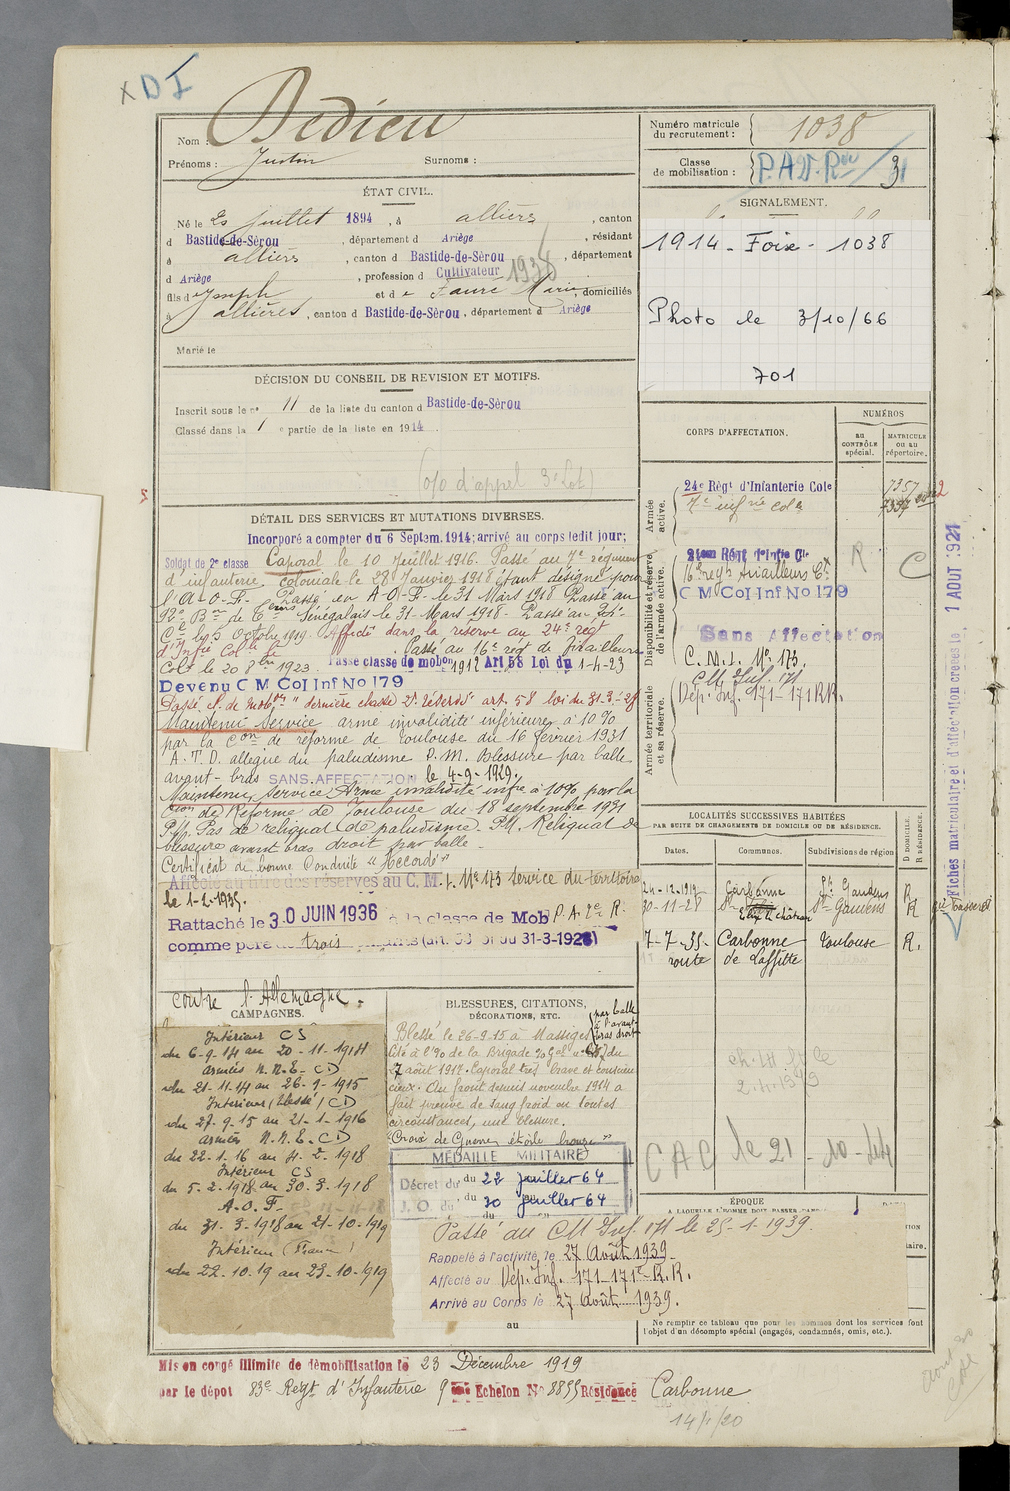 x D I
Nom : Dedieu
Prénoms : Justin Surnoms :
Numéro matricule du recrutement : 1038
Classe de mobilisation : P.A.D. Rve / 31
ÉTAT CIVIL.
Né le 20 juillet 1894, à allières, canton
d Bastide-de-Sérou, département d Ariège, résidant
à allières, canton d Bastide-de-Sérou, département
d Ariège, profession d Cultivateur 1938
fils d Joseph et d e Fauré Marie, domiciliés
à allières, canton d Bastide-de-Sérou, département d Ariège
Marié le
SIGNALEMENT.
1914 - Foix - 1038
Photo le 3/10/66
701
DÉCISION DU CONSEIL DE REVISION ET MOTIFS.
Inscrit sous le n° 11 de la liste du canton d Bastide-de-Sérou
Classé dans la 1 e partie de la liste en 1914
(o/o d'appel 3e Lot)
DÉTAIL DES SERVICES ET MUTATIONS DIVERSES.
Incorporé a compter du 6 Septem. 1914; arrivé au corps ledit jour;
Soldat de 2e classe Caporal le 10 Juillet 1916. Passé au 7e régiment
d'infanterie coloniale le 28 Janvier 1918 étant désigné pour
l'A-O-F. Passé en A-O-F. le 31 Mars 1918 Passé au
92e Bon de Teurs Sénégalais le 31-Mars 1918. Passé au
Cal le 3 Octobre 1919. Affecté dans la réserve au 24e régt
d'Infie Colle Passé au 16e régt de Tirailleurs
Cx le 20 8bre 1923. Passé classe de mobon 1912 Art 58 Loi du 1-4-23
Devenu C M Col Inf No 179
Passé cl. de mobon "dernière classe 2e réserve" art. 58 loi du 31-3-28
Maintenu Service armé invalidité inférieure à 10%
par la Con de réforme de Toulouse du 16 février 1931
A.T.D. allègue du paludisme P.M. Blessure par balle
avant-bras SANS AFFECTATION le 4-9-1929.
Maintenu Service Armé invalidité infre à 10% par la
Cion de Réforme de Toulouse du 18 septembre 1931
P/p. Pas de reliquat de paludisme. P.M. Reliquat de
blessure avant bras droit par balle.
Certificat de bonne Conduite "Accordé"
Affecté au titre des réserves au C. M. I. No 173 Service du territoire
le 1-2-1935.
Rattaché le 30 JUIN 1936 à la classe de Mob P.A. 2e R.
comme père de trois enfants (art. 58 loi du 31-3-1928)
CORPS D'AFFECTATION.
NUMÉROS
au CONTRÔLE spécial.
MATRICULE ou au répertoire.
Armée active.
24e Régt d'Infanterie Cole 7357
7e infrie Cole
Disponibilité et réserve de l'armée active.
21eme Régt d'Infie Cle R C
16e régt Tirailleurs
C M Col Inf No 179
Sans Affectation
C. M. I. No 173.
CM Inf. 171
Armée territoriale et sa réserve.
Dép. Inf. 171-171 RR.
Fiches matriculaire et d'affectation créées le 1 AOUT 1921
LOCALITÉS SUCCESSIVES HABITÉES
PAR SUITE DE CHANGEMENTS DE DOMICILE OU DE RÉSIDENCE.
Dates. Communes. Subdivisions de région
D DOMICILE. R RÉSIDENCE.
24-12-1919 Carbonne St Gaudens R
30-11-28 St Gaudens R
7-7-35. Carbonne Toulouse R.
route de Laffitte
CAC le 21-10-44
contre l'Allemagne.
CAMPAGNES.
Intérieur CS
du 6-9-14 au 20-11-1914
armées N.N.E. CD
du 21-11-14 au 26-9-1915
Intérieur (blessé) CD
du 27-9-15 au 21-1-1916
armées N.N.E. CD
du 22-1-16 au 4-2-1918
Intérieur CS
du 5-2-1918 au 30-3-1918
A.O.F.
du 31-3-1918 au 21-10-1919
Intérieur (France)
du 22-10-19 au 23-10-1919
BLESSURES, CITATIONS,
DÉCORATIONS, ETC.
Blessé le 26-9-15 à Massiges par balle à l'avant-bras droit
Cité à l'%0 de la Brigade du
27 août 1917. Caporal très brave et conscien
cieux. Au front depuis novembre 1914 a
fait preuve de sang froid en toutes
circonstances, une blessure.
"Croix de Guerre étoile bronze"
MÉDAILLE MILITAIRE
Décret du 22 juillet 64
J.O. du 30 juillet 64
ÉPOQUE
Passé au CM Inf. 171 le 25-1-1939.
Rappelé à l'activité, le 27 Août 1939.
Affecté au Dép. Inf. 171-171e R.R.
Arrivé au Corps le 27 Août 1939.
au
Ne remplir ce tableau que pour les hommes dont les services font
l'objet d'un décompte spécial (engagés, condamnés, omis, etc.).
Mis en congé illimité de démobilisation le 23 Décembre 1919
par le dépôt 83e Régt d'Infanterie 9 ème Echelon No 8855 Résidence Carbonne
14/1/20